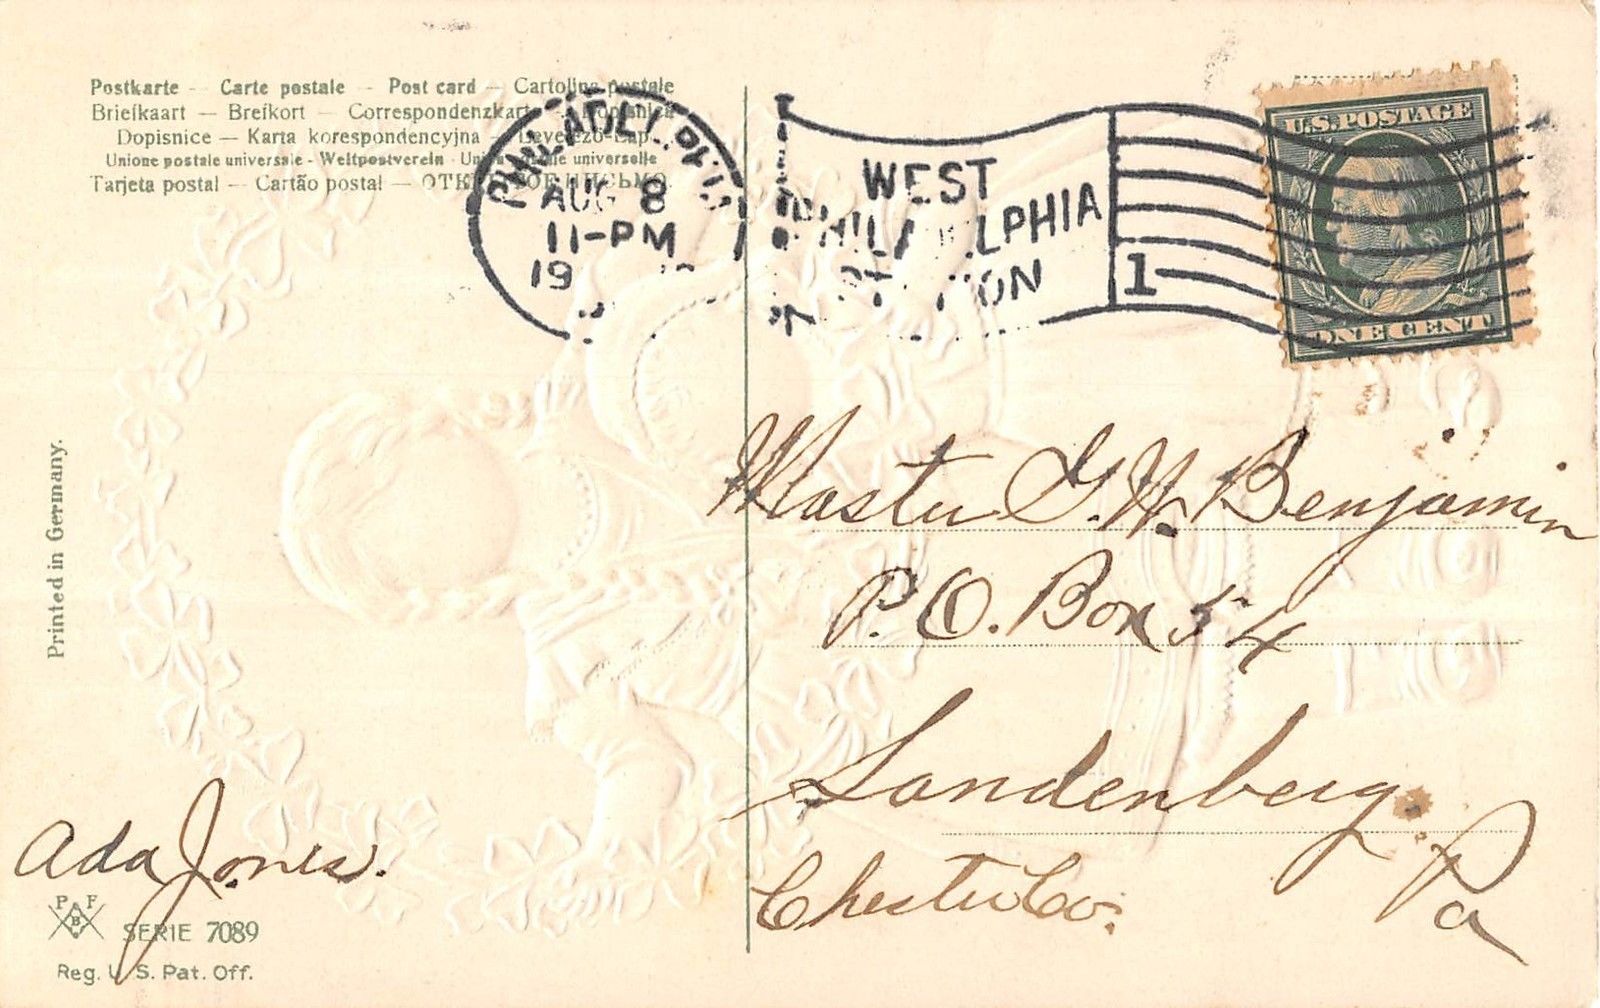 Postkarte — Carte postale — Post card — Cartolina postale
Briefkaart — Brefkort — Correspondenzkarte
Dopisnice — Karta korespondencyjna — Levelező-Lap
Unione postale universale - Weltpostverein - Union postale universelle
Tarjeta postal — Cartão postal — ОТКРЫТОЕ ПИСЬМО.
PHILADELPHIA
AUG 8
11-PM
19
WEST
PHILADELPHIA
STATION
1
U.S. POSTAGE
ONE CENT
Master G. W. Benjamin
P. O. Box 54
Landenberg.
Chester Co. Pa
Printed in Germany.
Ada Jones.
P F
B
SERIE 7089
Reg. U. S. Pat. Off.